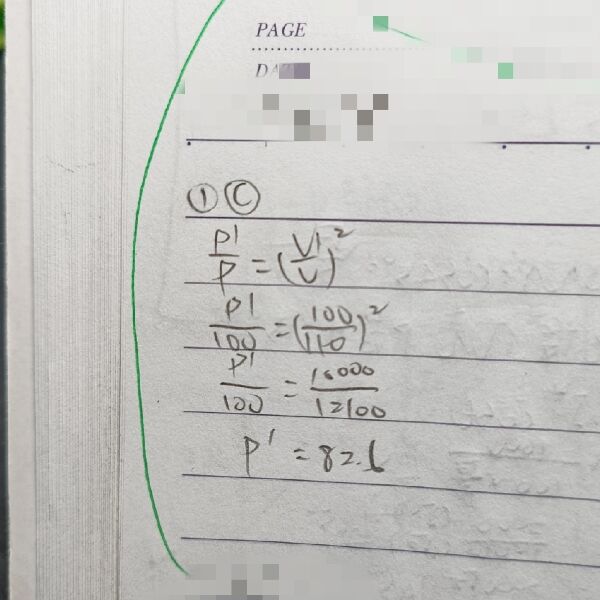 PAGE
① Ⓒ
P'/P = (V'/V)²
P'/100 = (100/110)²
P'/100 = 10000/12100
P' = 82.6